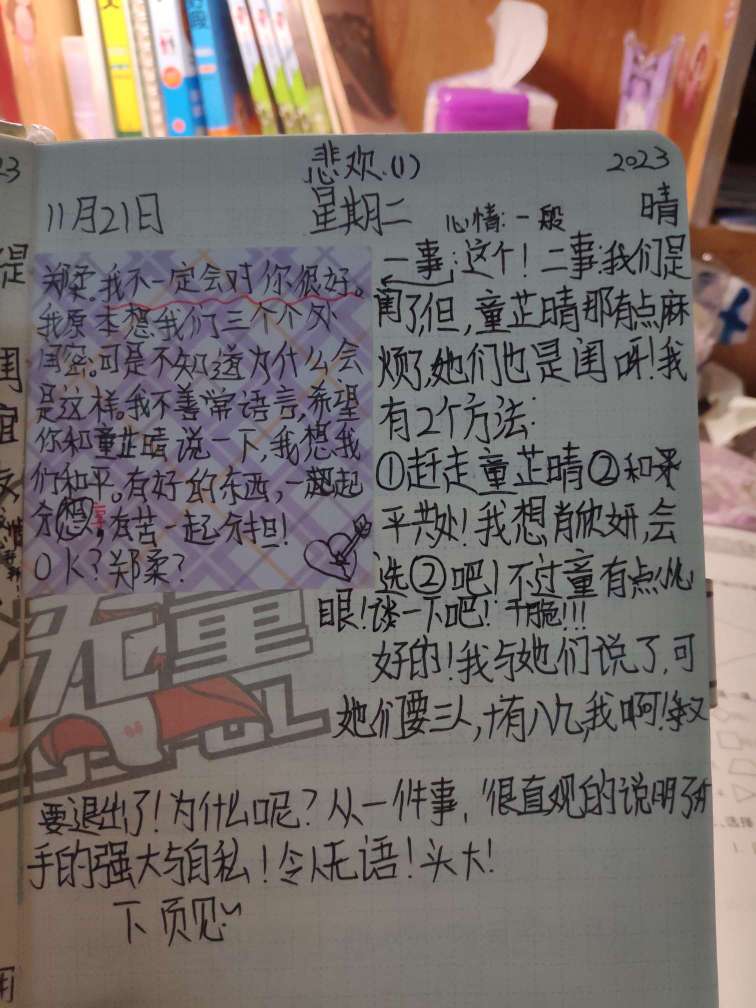 悲欢(1)
2023
11月21日
星期二
心情:一般
晴
郑柔。我不一定会对你很好。
我原本想我们三个个外
闺密。可是不知道为什么会
是这样。我不善常语言,希望
你和童芷晴说一下,我想我
们和平。有好的东西,一起
分享,有苦一起分担!
OK?郑柔?
一事:这个!二事:我们是
闺了,但,童芷晴那有点麻
烦了,她们也是闺呀!我
有2个方法:
①赶走童芷晴②和柔
平共处!我想肖欣妍,会
选②吧!不过童有点小心
眼!谈一下吧!干脆!!!
好的!我与她们说了,可
她们要三人,十有八九,我啊!又
要退出了!为什么呢?从一件事,很直观的说明了对
手的强大与自私!令人无语!头大!
下页见~
无量